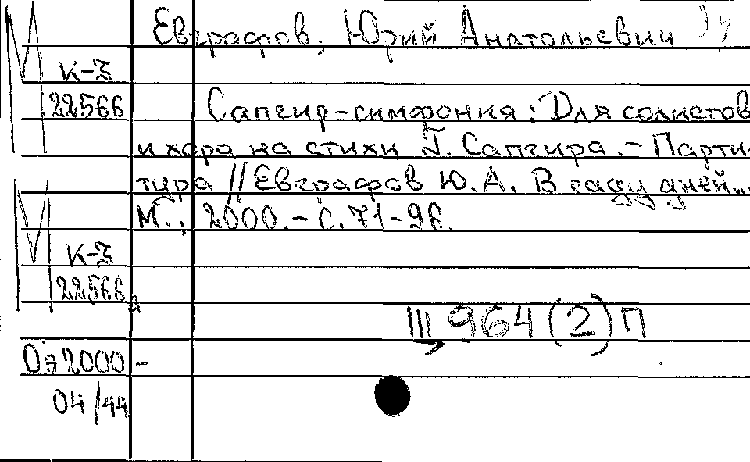 Евграфов, Юрий Анатольевич
К-I
22566
Сапгир-симфония: Для солистов
и хора на стихи Г. Сапгира. - Парти-
тура // Евграфов Ю.А. В саду дней...
М., 2000. - С. 71-96.
К-I
22566а
III 964(2)П
Оэ2000-
04/44